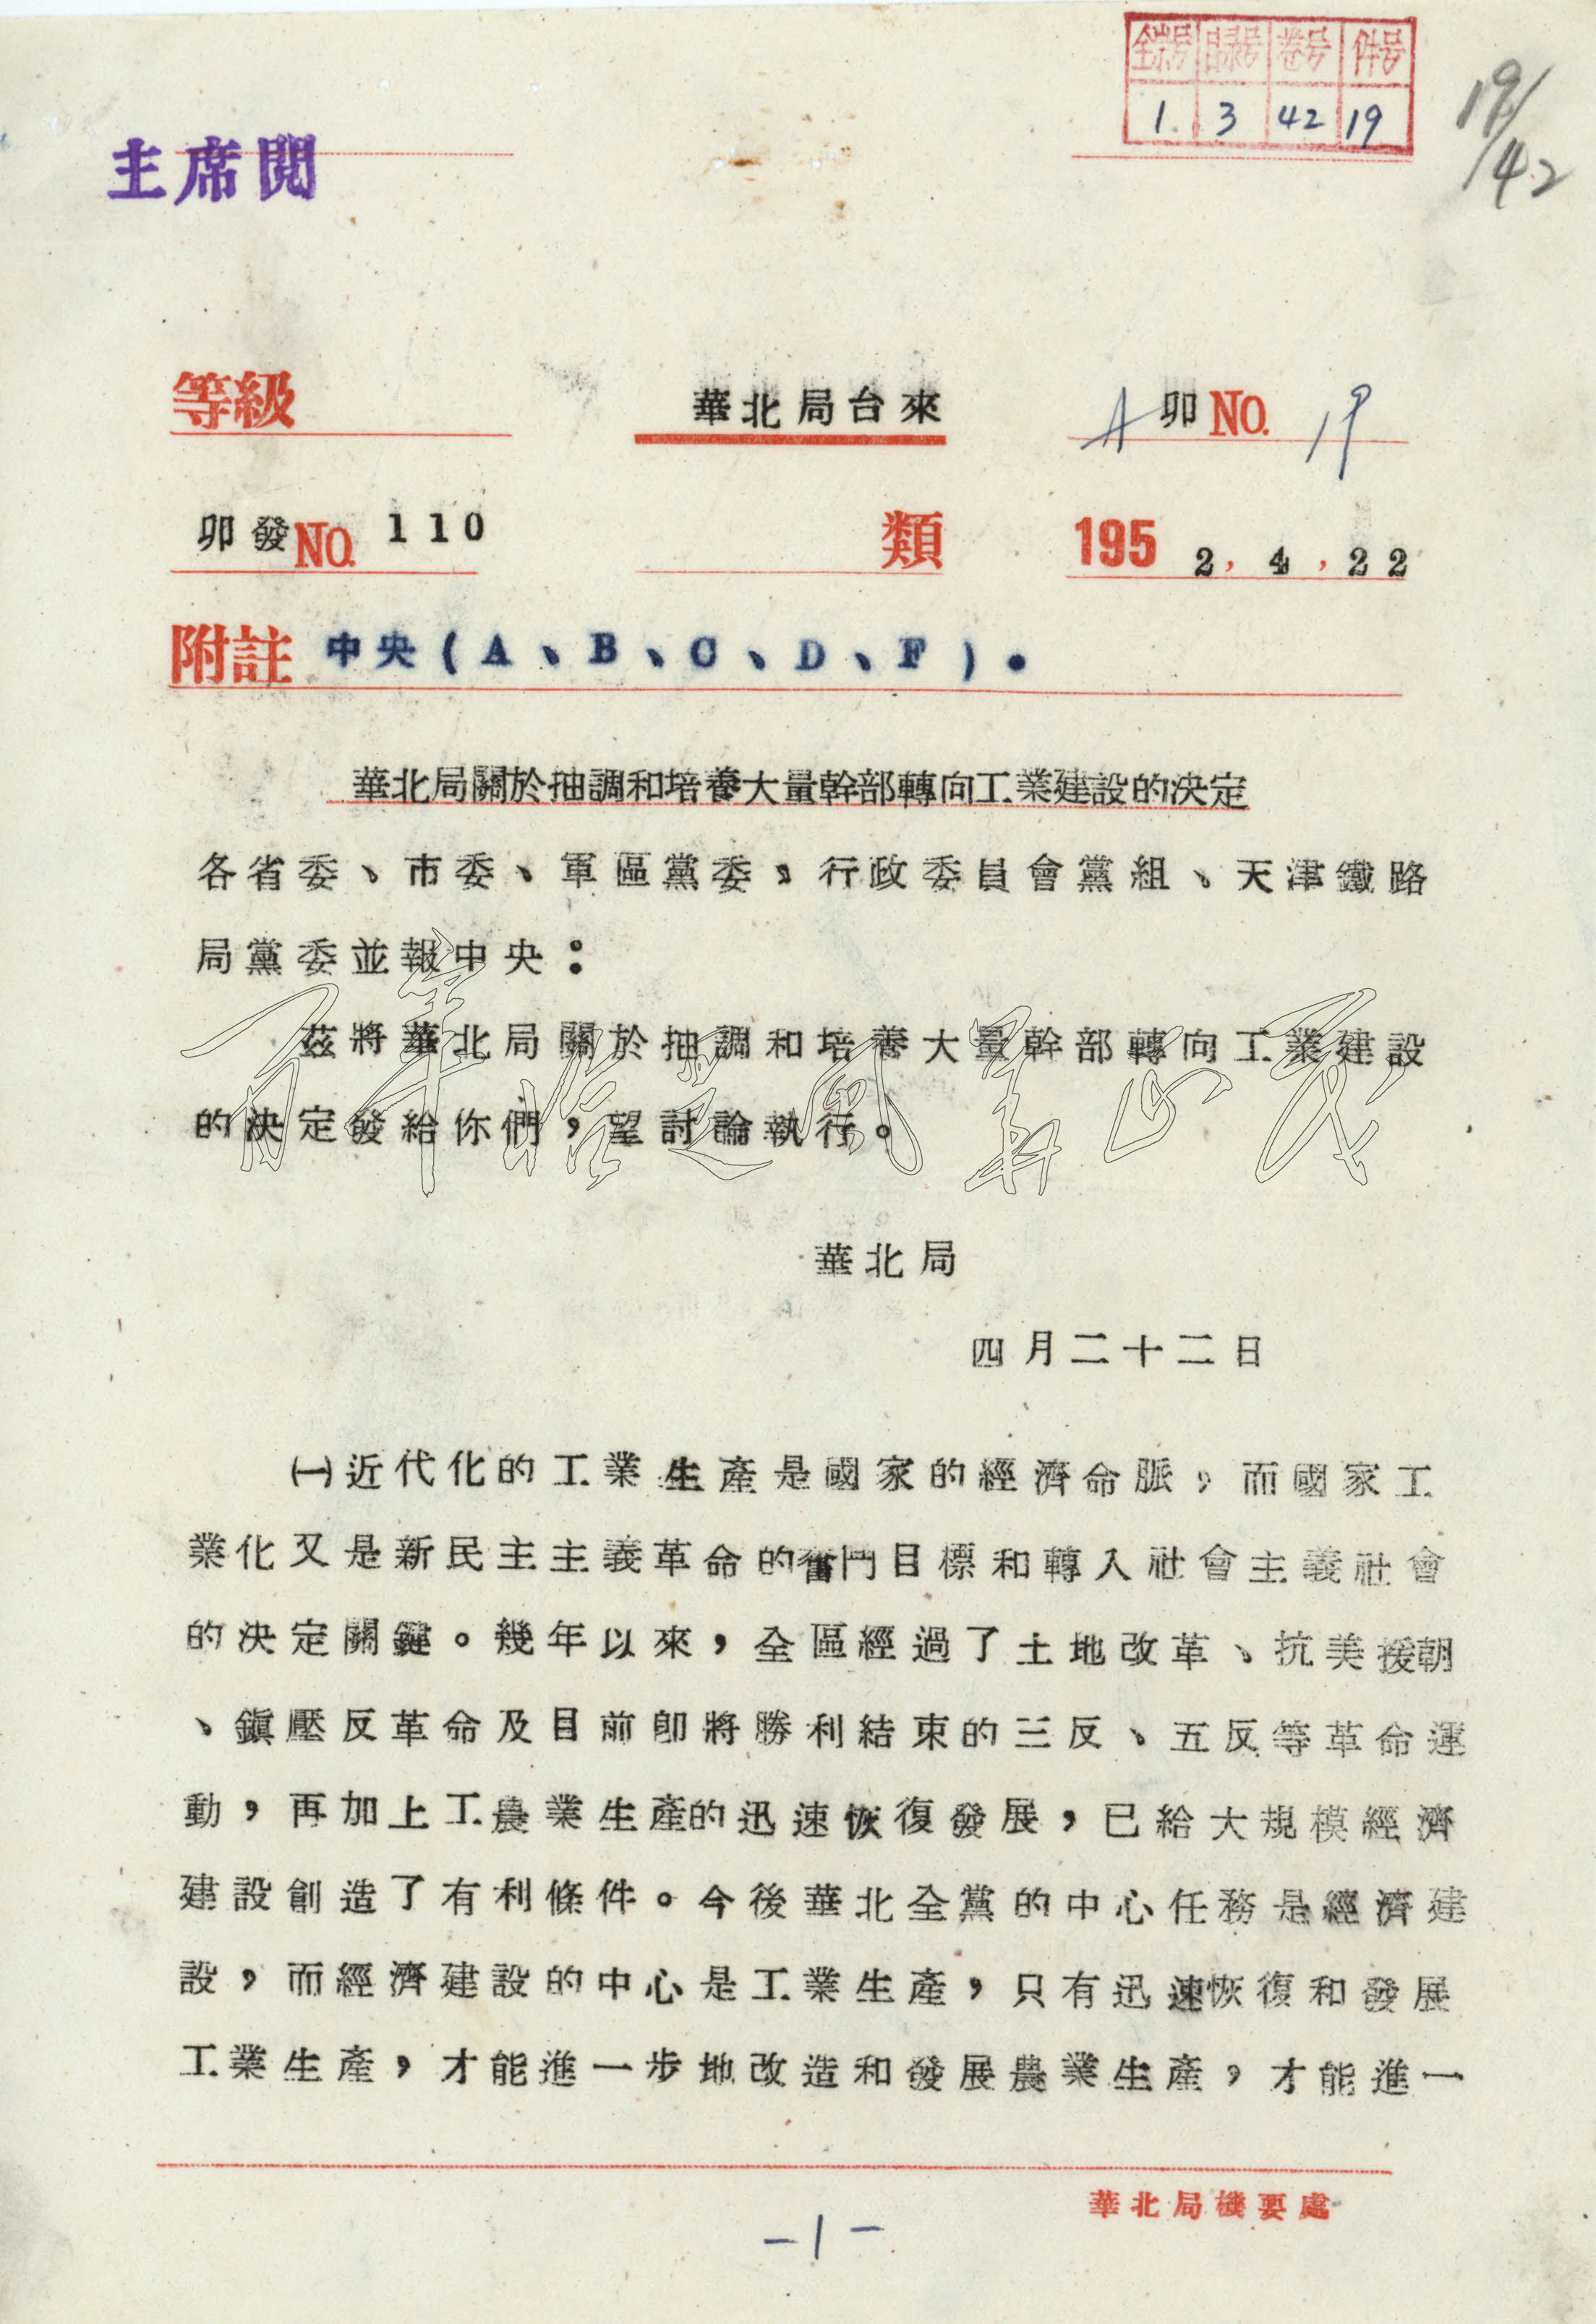 全宗号 目录号 卷号 件号
1. 3 42 19
19/42
主席閲
等級
華北局台來
A 卯NO. 19
卯發NO. 110
類
1952,4,22
附註 中央(A、B、C、D、F)。
華北局關於抽調和培養大量幹部轉向工業建設的決定
各省委、市委、軍區黨委,行政委員會黨組、天津鐵路
局黨委並報中央:
茲將華北局關於抽調和培養大量幹部轉向工業建設
的決定發給你們,望討論執行。
華北局
四月二十二日
㈠近代化的工業生產是國家的經濟命脈,而國家工
業化又是新民主主義革命的奮鬥目標和轉入社會主義社會
的決定關鍵。幾年以來,全區經過了土地改革、抗美援朝
、鎮壓反革命及目前卽將勝利結束的三反、五反等革命運
動,再加上工農業生產的迅速恢復發展,已給大規模經濟
建設創造了有利條件。今後華北全黨的中心任務是經濟建
設,而經濟建設的中心是工業生產,只有迅速恢復和發展
工業生產,才能進一步地改造和發展農業生產,才能進一
華北局機要處
-1-